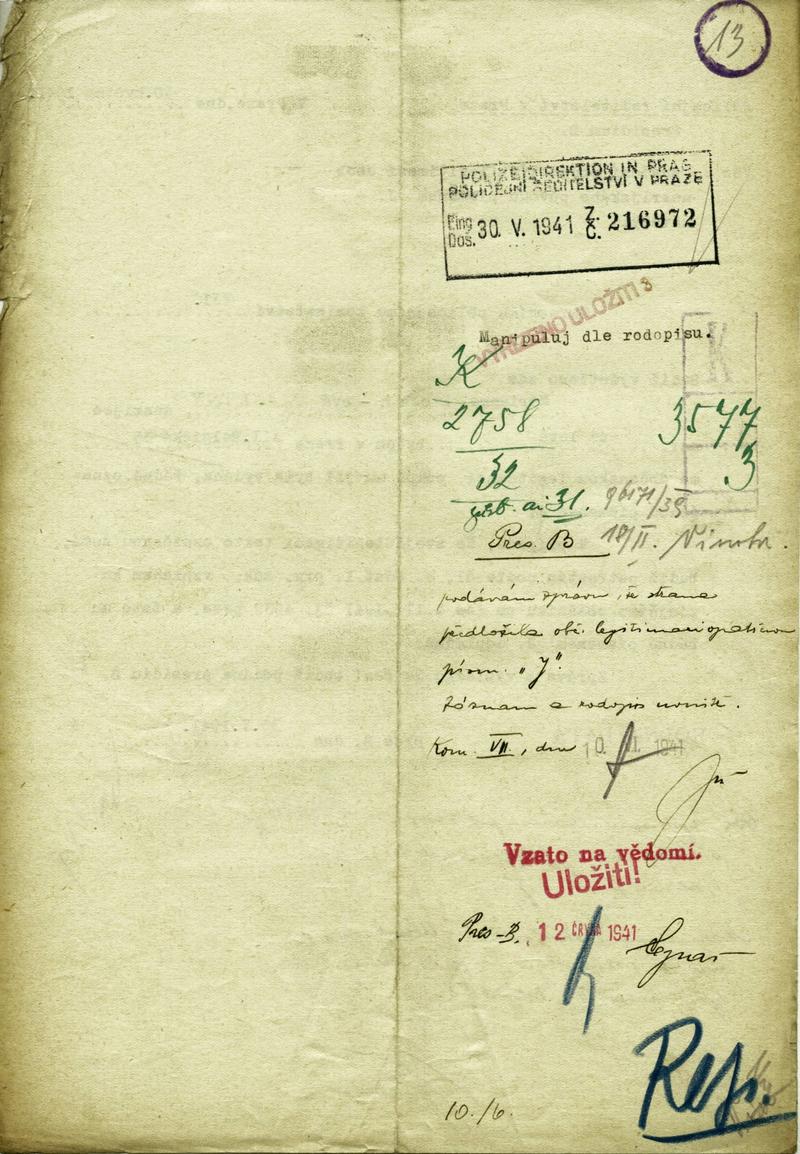 13
POLIZEIDIREKTION IN PRAG
POLICEJNÍ ŘEDITELSTVÍ V PRAZE
Eing. Doš. 30. V. 1941 Z. Č. 216972
ULOŽITI
Manipuluj dle rodopisu.
K
2758 3577
32 3
31. 96171/39
Pres. B 18/II.
podávám zprávu, že strana
předložila obč. legitimaci opatřenou
písm. „J".
Záznam a rodopis
Kom. VII., dne 10. 1941
Vzato na vědomí.
Uložiti!
Pres-B. 12 ČRVNA 1941
10./6.